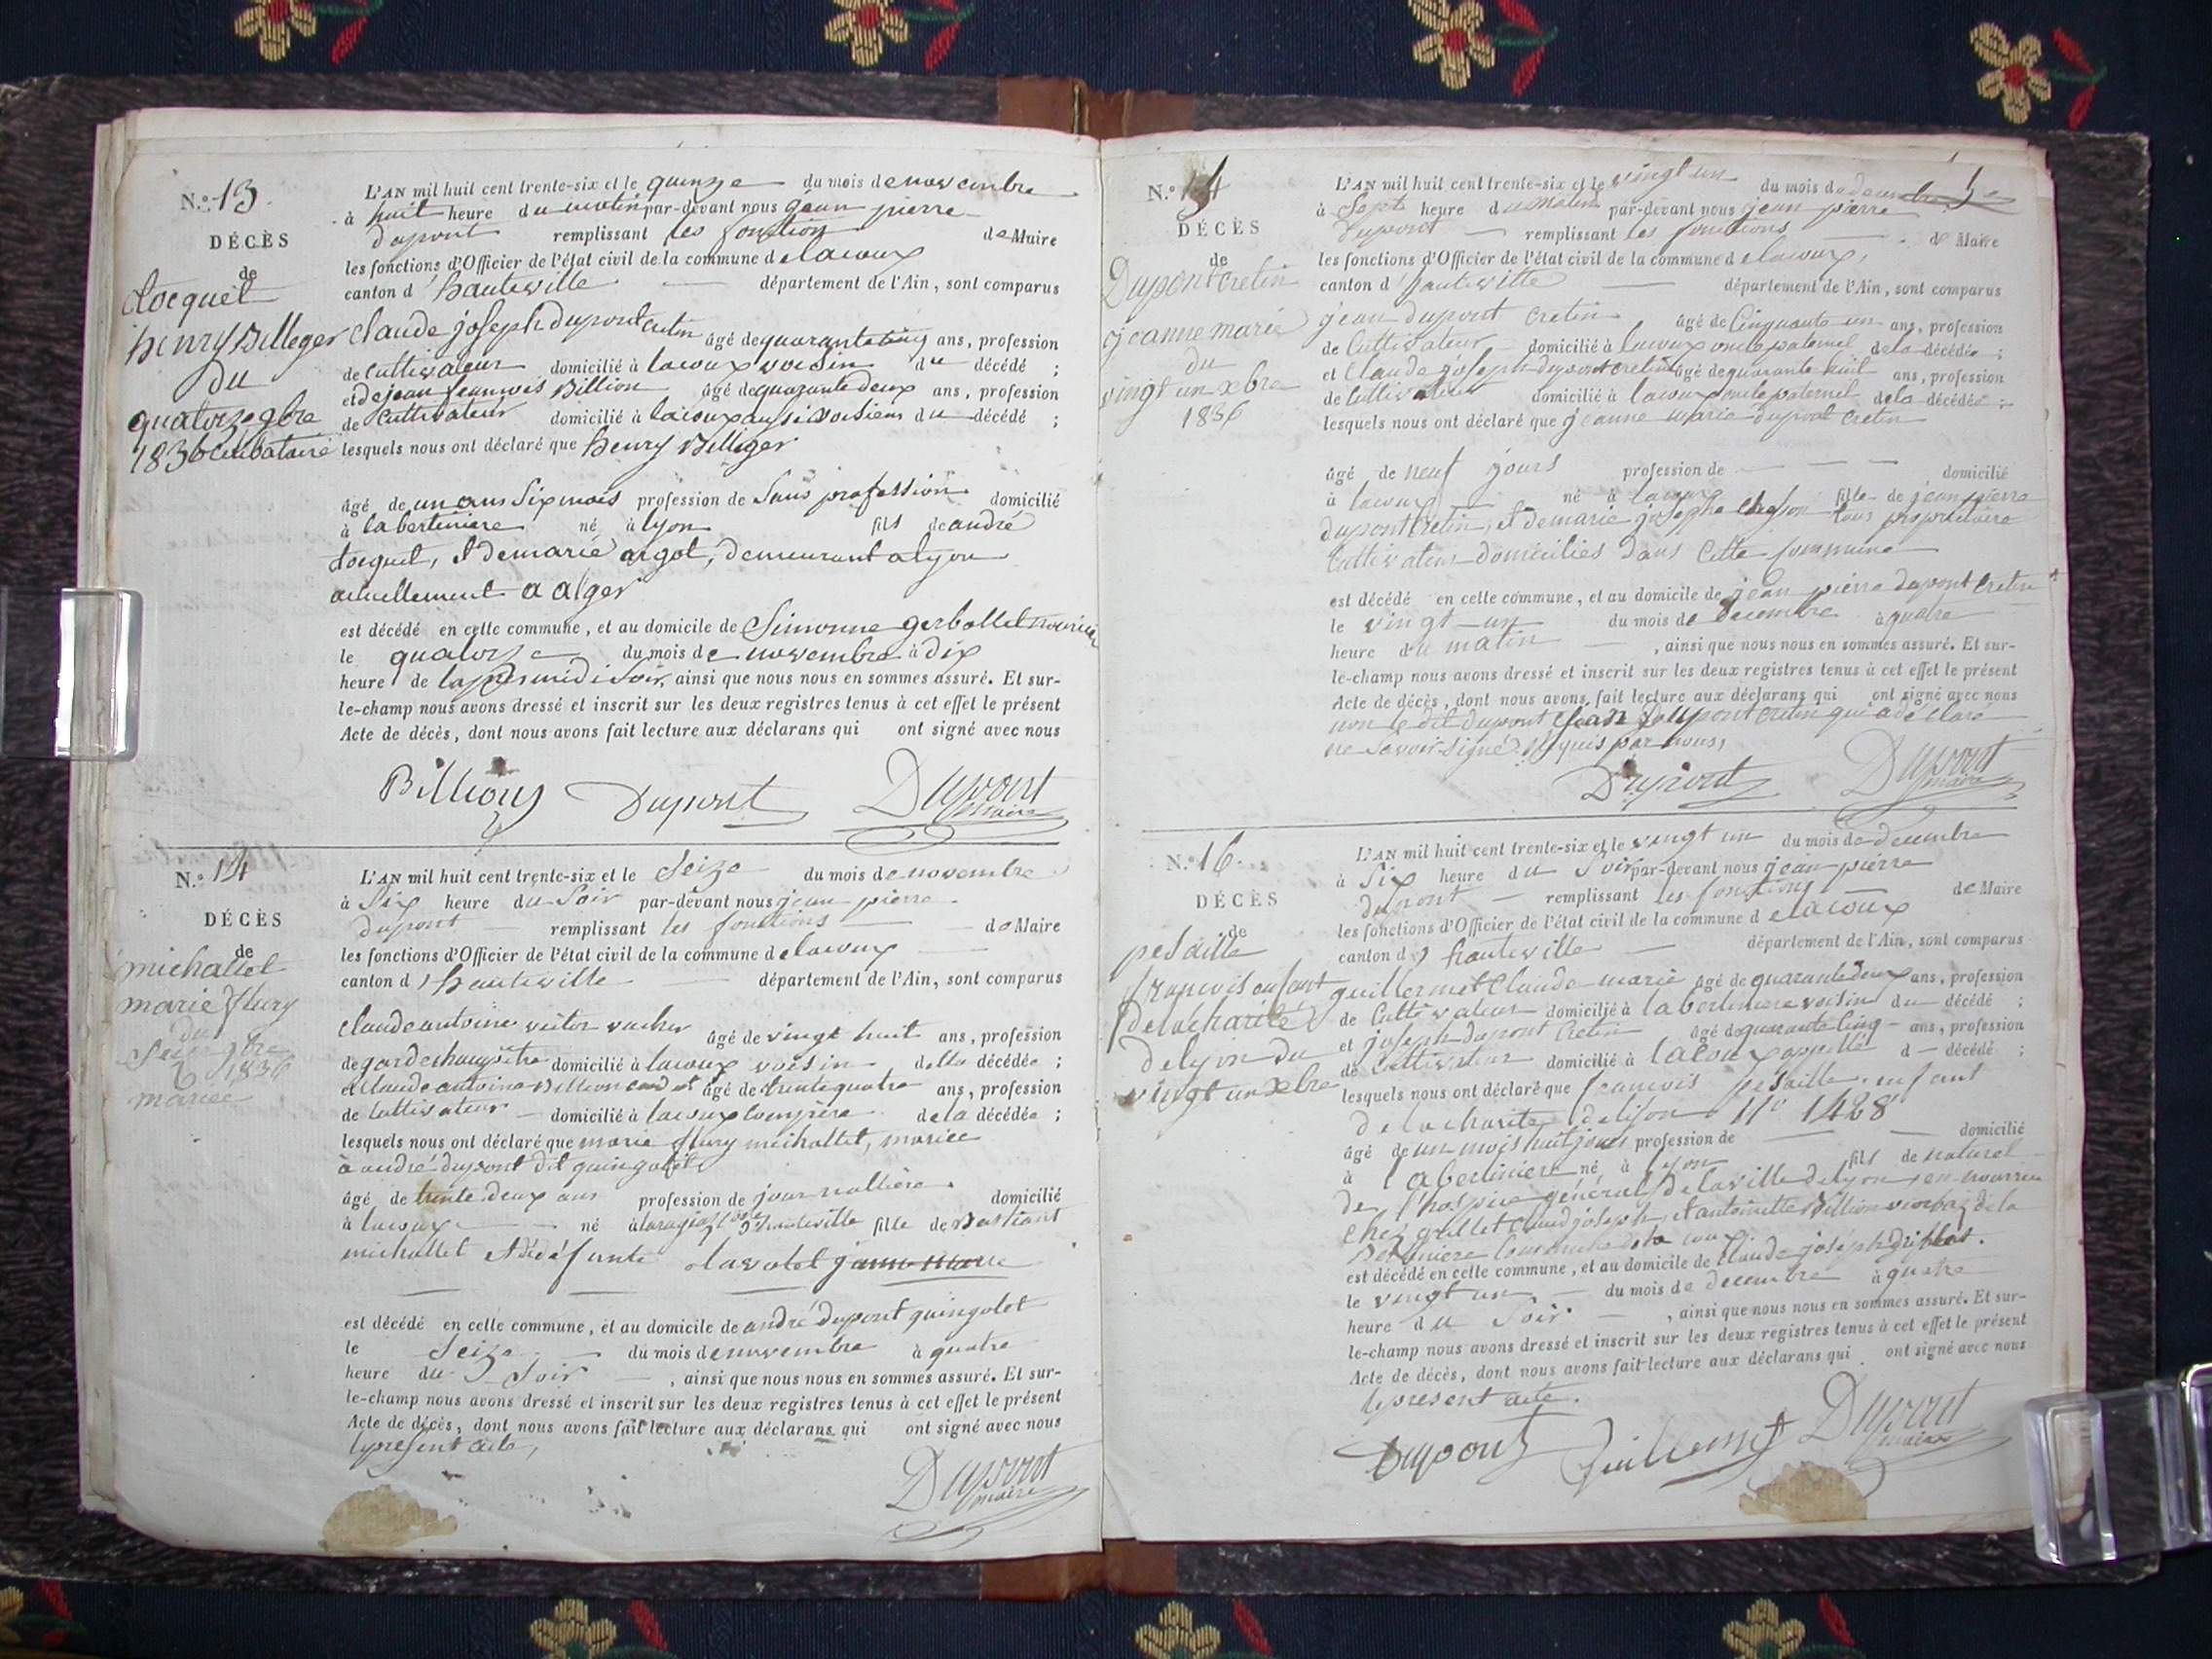 N.o 13.
DÉCÈS
de
Locquet
henry Billeger
du
quatorze 9bre
1836 celibataire
L'AN mil huit cent trente-six et le quinze du mois de novembre
à huit heure du matin par-devant nous jean pierre
dupont remplissant les fonction de Maire
les fonctions d'Officier de l'état civil de la commune de lacoux
canton d'hauteville département de l'Ain, sont comparus
claude joseph dupont cretin âgé de quarante cinq ans, profession
de cultivateur domicilié à lacoux voisin du décédé ;
et de jean francois Billion âgé de quarante deux ans, profession
de cultivateur domicilié à lacoux aussi voisiens du décédé ;
lesquels nous ont déclaré que henry Billiger
âgé de un ans six mois profession de sans profession domicilié
à la bertiniere né à lyon fils de andré
Locquet, et de marie argot, demeurant a lyon
actuellement a alger
est décédé en cette commune, et au domicile de Simonne gerbollet nourice
le quatorze du mois de novembre à dix
heure de lapres midi soir, ainsi que nous nous en sommes assuré. Et sur-
le-champ nous avons dressé et inscrit sur les deux registres tenus à cet effet le présent
Acte de décès, dont nous avons fait lecture aux déclarans qui ont signé avec nous
Billion Dupont Dupont
maire
N.o 14
DÉCÈS
de
michallet
marie flury
du
Seize 9bre
1836
mariee
L'AN mil huit cent trente-six et le Seize du mois de novembre
à Six heure du Soir par-devant nous jean pierre
dupont remplissant les fonctions de Maire
les fonctions d'Officier de l'état civil de la commune de lacoux
canton d'hauteville département de l'Ain, sont comparus
claude antoine victor vucher âgé de vingt huit ans, profession
de garde champêtre domicilié à lacoux voisin de la décédée ;
et claude antoine Billion cadet âgé de trente quatre ans, profession
de cultivateur domicilié à lacoux compère de la décédée ;
lesquels nous ont déclaré que marie flury michallet, mariee
à andré dupont dit guingolet
âgé de trente deux ans profession de journallière domicilié
à lacoux né à d'hauteville fille de Bastiant
michallet et de défunte lavolet jeanne marie
est décédé en cette commune, et au domicile de andré dupont guingolet
le Seize du mois de novembre à quatre
heure du Soir, ainsi que nous nous en sommes assuré. Et sur-
le-champ nous avons dressé et inscrit sur les deux registres tenus à cet effet le présent
Acte de décès, dont nous avons fait lecture aux déclarans qui ont signé avec nous
le present acte,
Dupont
maire
N.o
DÉCÈS
de
Dupont cretin
jeanne marie
du
vingt un xbre
1836
L'AN mil huit cent trente-six et le vingt un du mois de decembre
à Sept heure du matin par-devant nous jean pierre
dupont remplissant les fonctions de Maire
les fonctions d'Officier de l'état civil de la commune de lacoux,
canton d'hauteville département de l'Ain, sont comparus
jean dupont cretin âgé de Cinquante un ans, profession
de Cultivateur domicilié à lacoux oncle paternel de la décédée ;
et Claude joseph dupont cretin âgé de quarante huit ans, profession
de Cultivateur domicilié à lacoux oncle paternel de la décédée ;
lesquels nous ont déclaré que jeanne marie dupont cretin
âgé de neuf jours profession de domicilié
à lacoux né à lacoux fille de jean pierre
dupont cretin, et de marie josephe tous propriétaire
Cultivateur domicilies dans Cette Commune
est décédé en cette commune, et au domicile de jean pierre dupont Cretin
le vingt un du mois de decembre à quatre
heure du matin, ainsi que nous nous en sommes assuré. Et sur-
le-champ nous avons dressé et inscrit sur les deux registres tenus à cet effet le présent
Acte de décès, dont nous avons fait lecture aux déclarans qui ont signé avec nous
non le dit dupont jean dupont cretin qui a déclaré
ne savoir signé requis par nous,
Dupont Dupont
maire
N.o 16.
DÉCÈS
de
pesaille
francois enfant
de la charité
de lyon du
vingt un xbre
L'AN mil huit cent trente-six et le vingt un du mois de decembre
à Six heure du Soir par-devant nous jean pierre
dupont remplissant les fonctions de Maire
les fonctions d'Officier de l'état civil de la commune de lacoux
canton d'hauteville département de l'Ain, sont comparus
guillermet Claude marie âgé de quarante deux ans, profession
de Cultivateur domicilié à la bertiniere voisin du décédé ;
et joseph dupont Cretin âgé de quarante cinq ans, profession
de Cultivateur domicilié à lacoux appellé d décédé ;
lesquels nous ont déclaré que francois pesaille enfant
de la charite de lion no 1428
âgé de un mois huit jours profession de domicilié
à la bertiniere né à lyon fils de naturel
de l'hospice général de la ville de lyon, en nourrice
chez grillet Claud joseph, et antoinette Billion de la
Bertiniere Commune de la coux.
est décédé en cette commune, et au domicile de Claude joseph
le vingt un du mois de decembre à quatre
heure du Soir, ainsi que nous nous en sommes assuré. Et sur-
le-champ nous avons dressé et inscrit sur les deux registres tenus à cet effet le présent
Acte de décès, dont nous avons fait lecture aux déclarans qui ont signé avec nous
le present acte.
Dupont Guillermet Dupont
maire